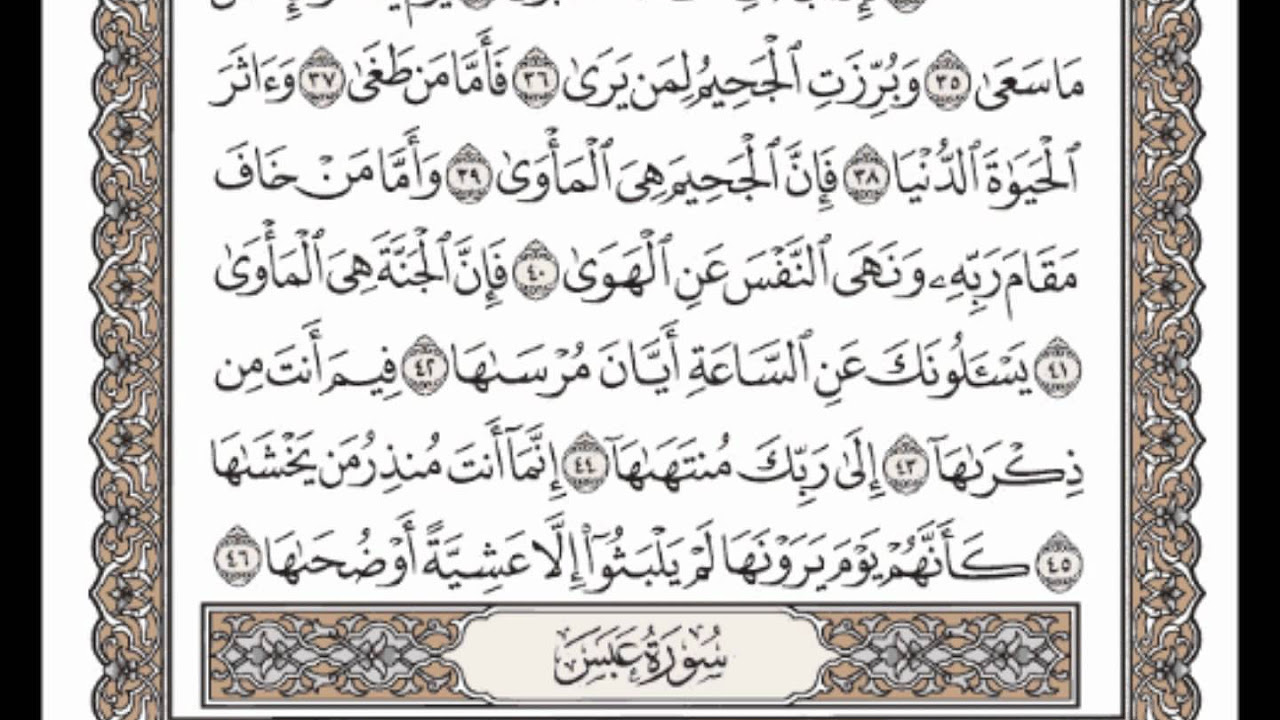 مَا سَعَىٰ ٣٥ وَبُرِّزَتِ ٱلْجَحِيمُ لِمَن يَرَىٰ ٣٦ فَأَمَّا مَن طَغَىٰ ٣٧ وَءَاثَرَ
ٱلْحَيَوٰةَ ٱلدُّنْيَا ٣٨ فَإِنَّ ٱلْجَحِيمَ هِيَ ٱلْمَأْوَىٰ ٣٩ وَأَمَّا مَنْ خَافَ
مَقَامَ رَبِّهِۦ وَنَهَى ٱلنَّفْسَ عَنِ ٱلْهَوَىٰ ٤٠ فَإِنَّ ٱلْجَنَّةَ هِيَ ٱلْمَأْوَىٰ
٤١ يَسْـَٔلُونَكَ عَنِ ٱلسَّاعَةِ أَيَّانَ مُرْسَىٰهَا ٤٢ فِيمَ أَنتَ مِن
ذِكْرَىٰهَآ ٤٣ إِلَىٰ رَبِّكَ مُنتَهَىٰهَآ ٤٤ إِنَّمَآ أَنتَ مُنذِرُ مَن يَخْشَىٰهَا
٤٥ كَأَنَّهُمْ يَوْمَ يَرَوْنَهَا لَمْ يَلْبَثُوٓا۟ إِلَّا عَشِيَّةً أَوْ ضُحَىٰهَا ٤٦
سُورَةُ عَبَسَ